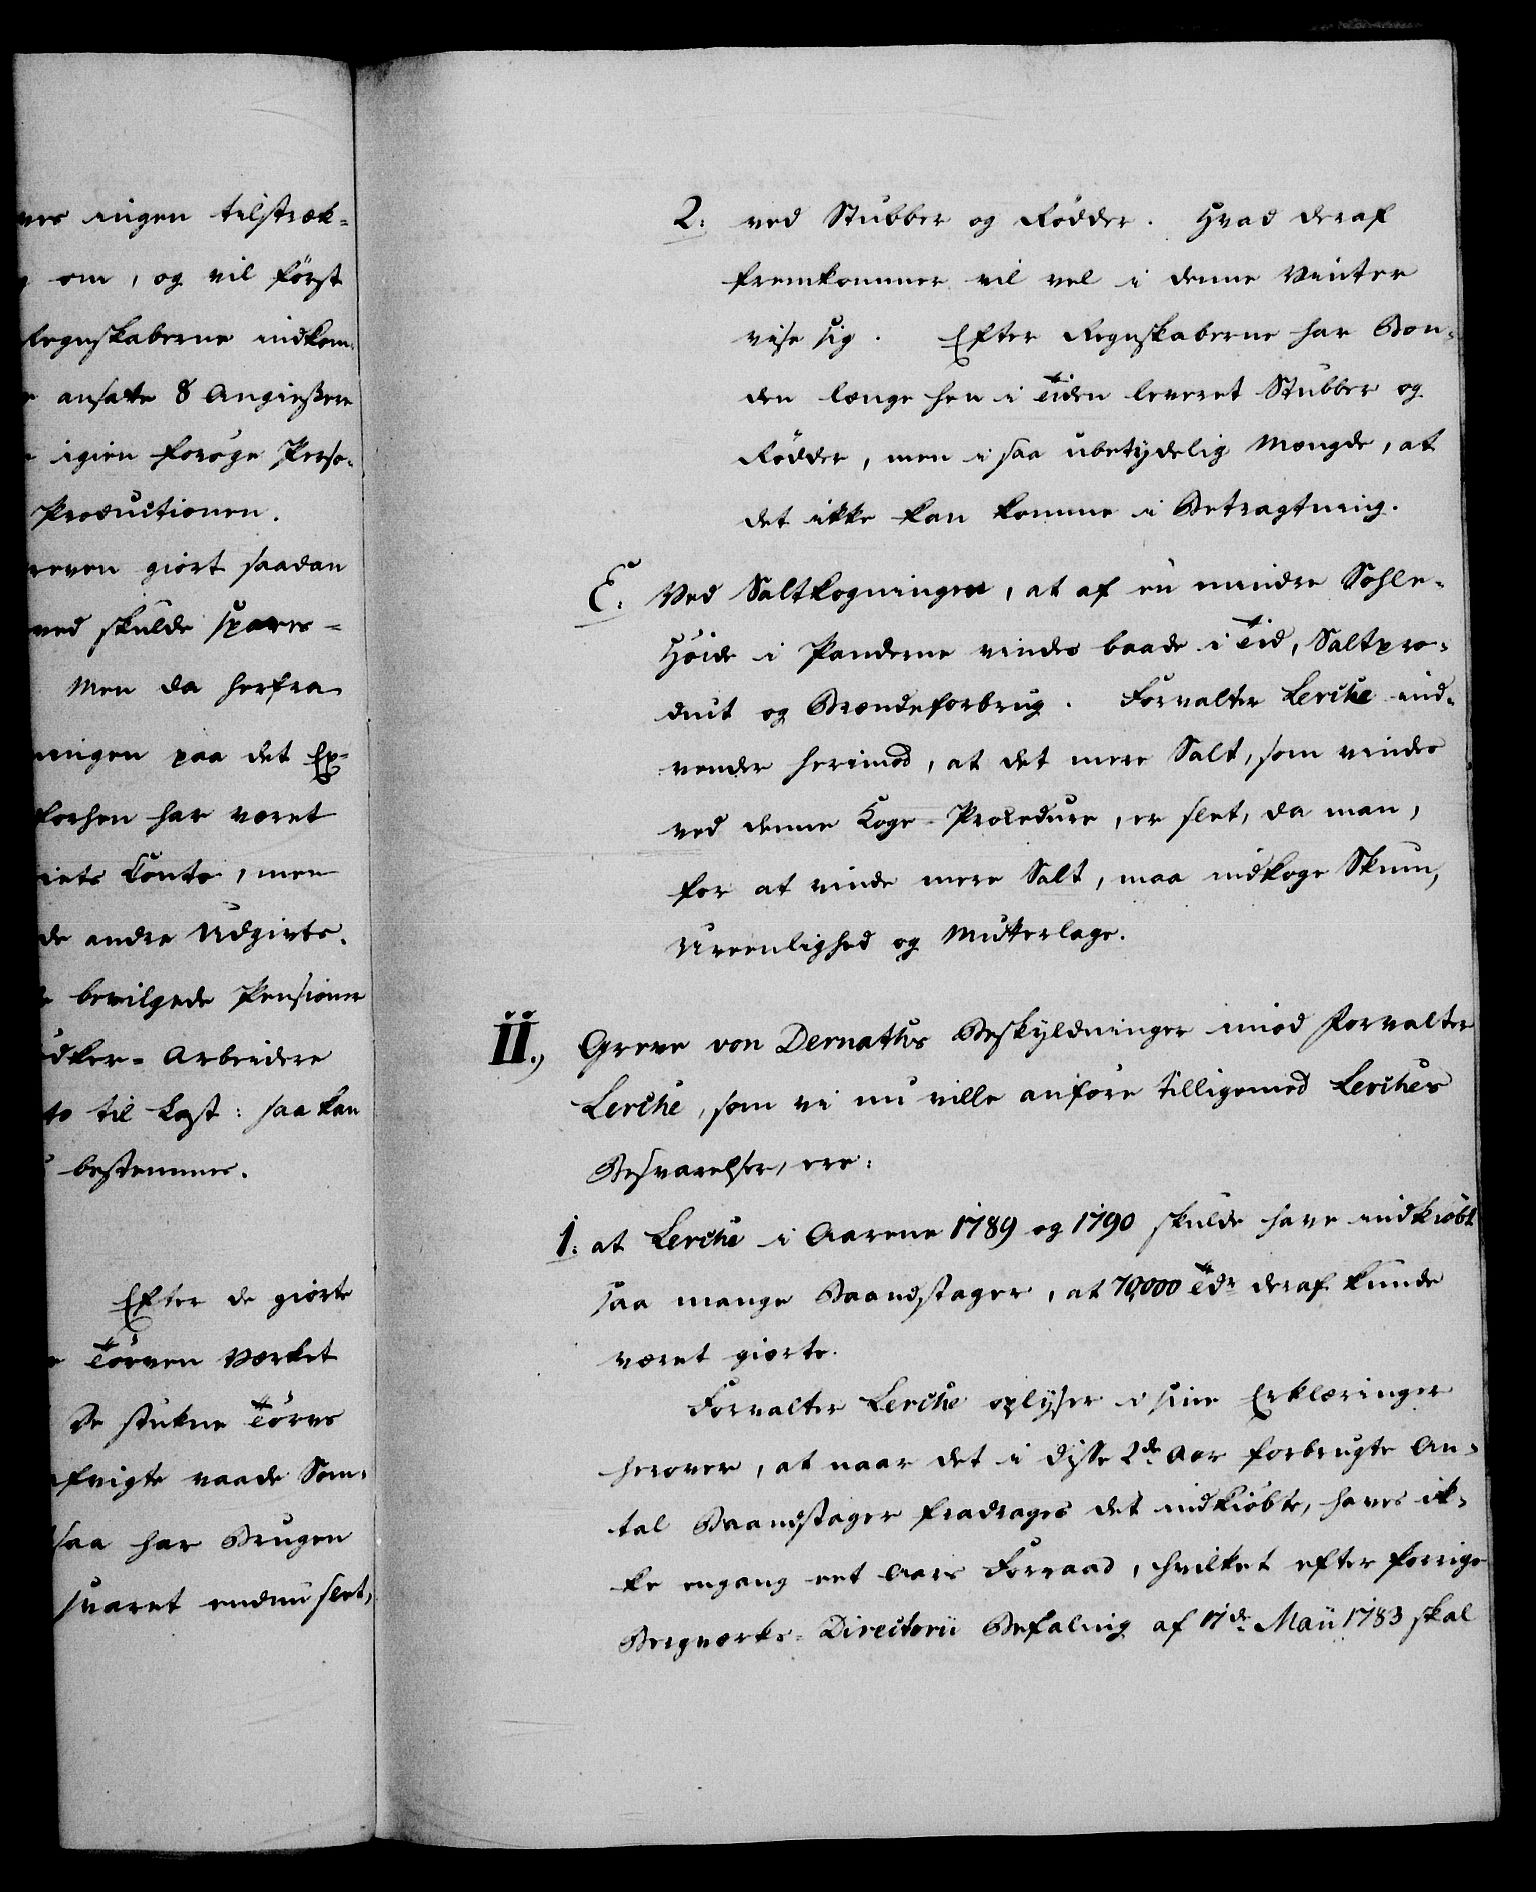 ves ingen tilstræk-
om, og vil först
Regnskaberne indkom-
ansatte 8 Angiesere
igien foröge Perso-
Productionen.
reven giort saadan
ved skulde spares -
Men da herfra
ningen paa det Ex-
forhen har været
iets Conto, men
de andre Udgivts.
bevilgede Pensioner
ödker-Arbeidere
to til Last: saa kan
bestemmes.
Efter de giorte
Törven Værket
De stukne Törvs
fvigte vaade Som-
saa har Brugen
svaret endnu slet,
2: ved Stubber og Rödder. Hvad deraf
fremkommer vil vel i denne Vinter
vise sig. Efter Regnskaberne har Bon-
den længe hen i Tiden leveret Stubber og
Rödder, men i saa ubetydelig Mængde, at
det ikke kan komme i Betragtning.
E. Ved Saltkogningen, at af en mindre Sohle-
Höide i Panderne vindes baade i Tid, Saltpro-
duct og Brændeforbrug. Forvalter Lerche ind-
vender herimod, at det mere Salt, som vindes
ved denne Koge-Procedure, er slet, da man,
for at vinde mere Salt, maa indkoge Skum,
Ureenlighed og Mutterlage.
II., Greve von Dernaths Beskyldninger imod Forvalter
Lerche, som vi nu ville anföre tilligemed Lerches
Besvarelser, ere:
1: at Lerche i Aarene 1789 og 1790 skulde have indkiöbt
saa mange Baandstager, at 70,000 Tdr deraf kunde
været giorte.
Forvalter Lerche oplyser i sine Erklæringer
herover, at naar det i disse 2de Aar forbrugte An-
tal Baandstager fradrages det indkiöbte, haves ik-
ke engang eet Aars Forraad, hvilket efter forrige
Bergværks-Directorii Befaling af 17de Maii 1783 skal